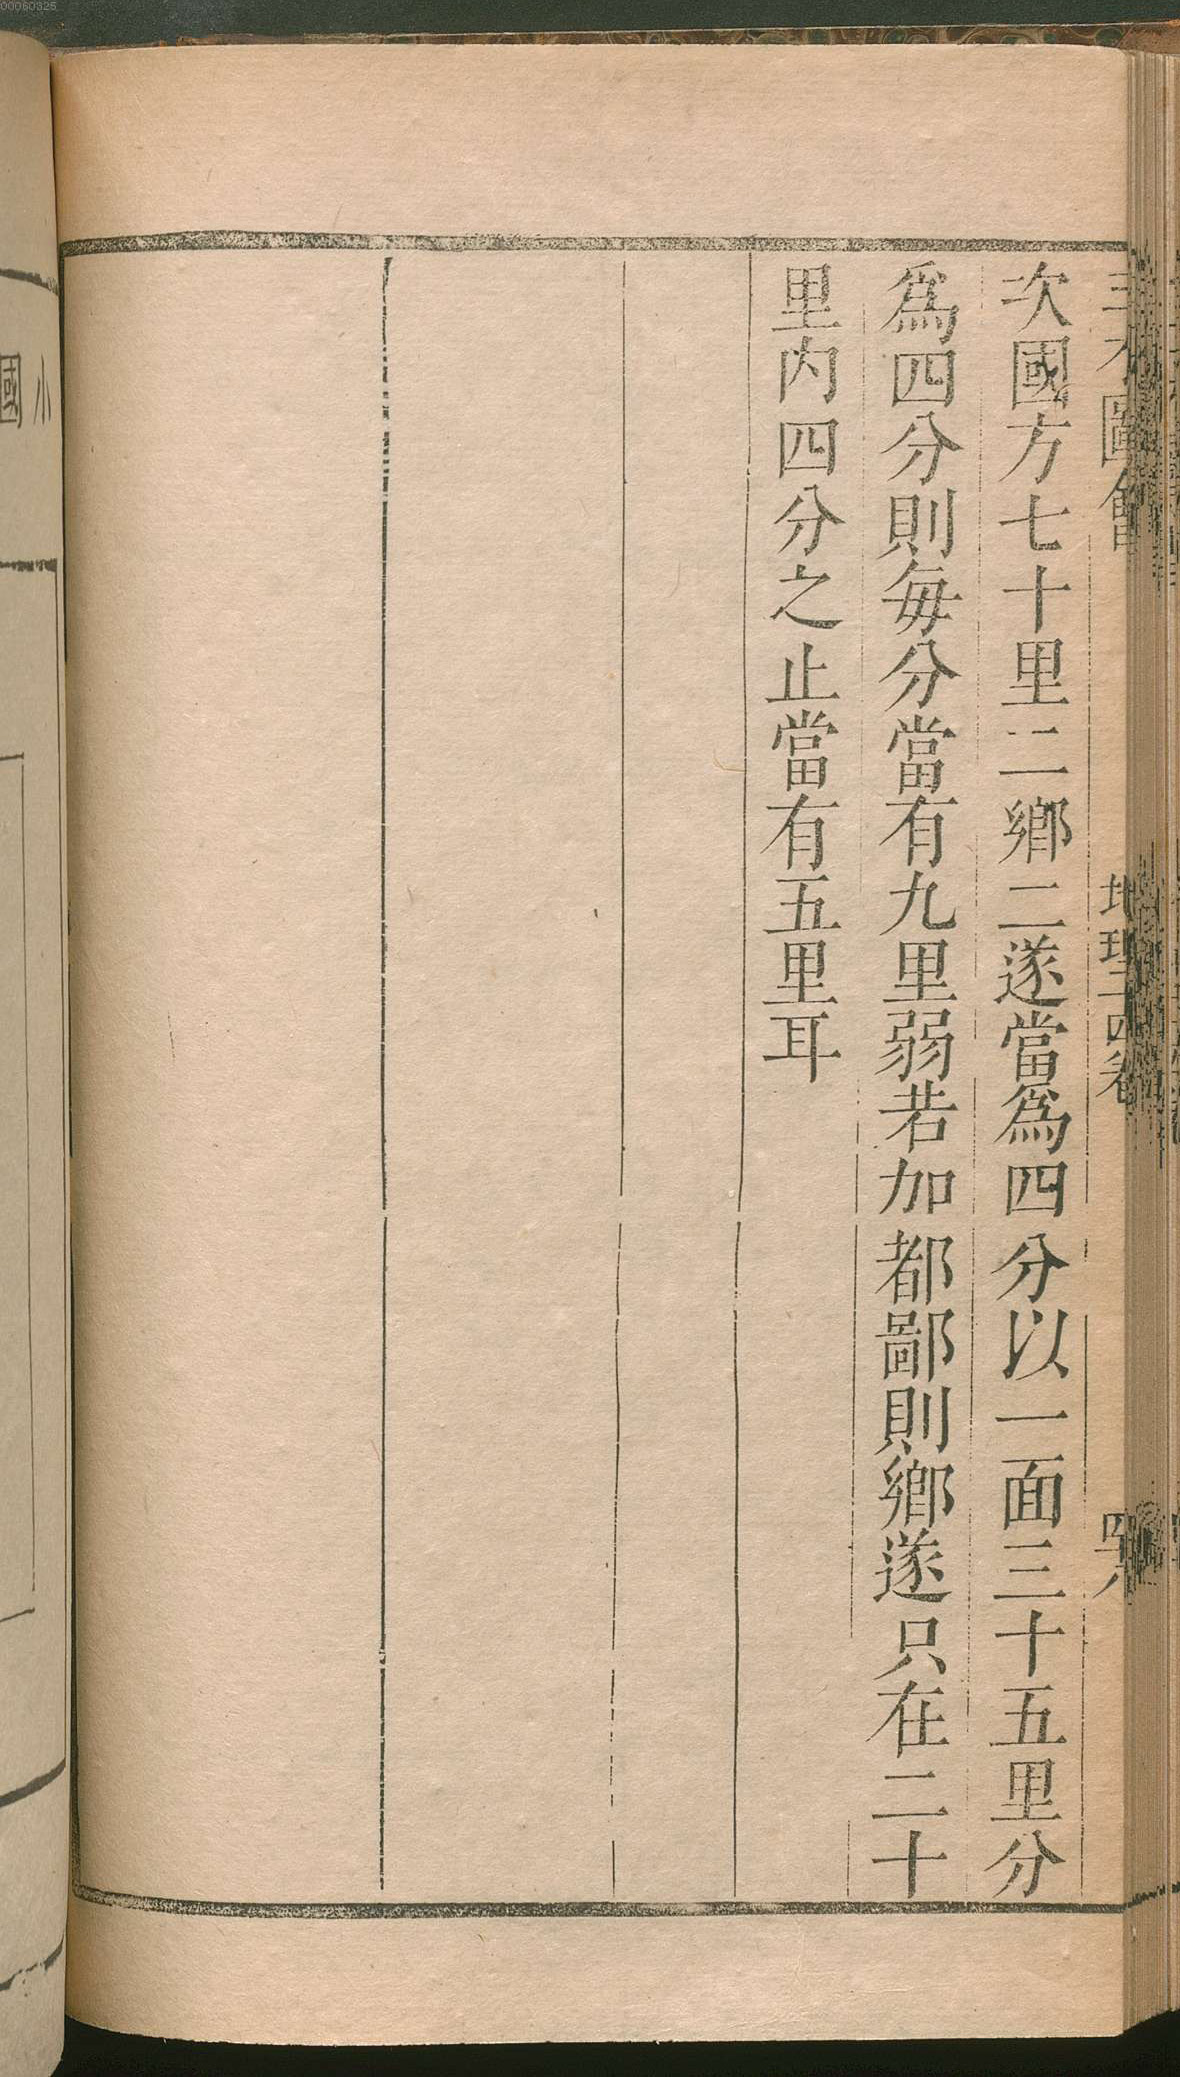 00060325
三才圖會
地理十四卷
次國方七十里二鄉二遂當爲四分以一面三十五里分
爲四分則每分當有九里弱若加都鄙則鄉遂只在二十
里内四分之止當有五里耳
小
國